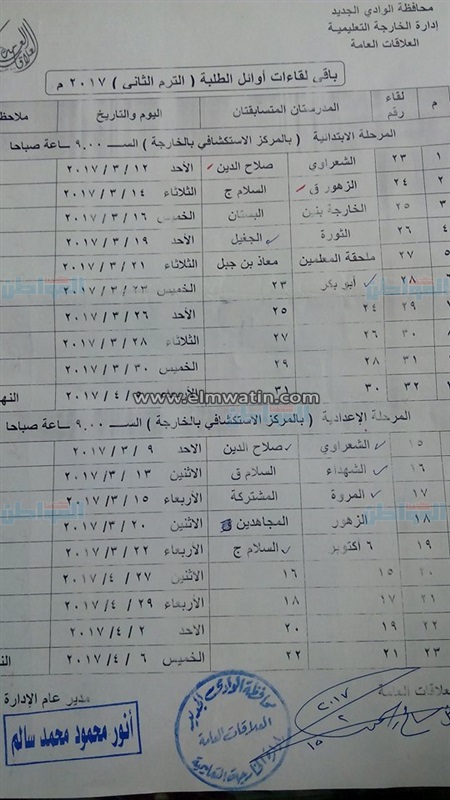 محافظة الوادي الجديد
إدارة الخارجة التعليمية
العلاقات العامة
باقى لقاءات أوائل الطلبة ( الترم الثانى ) ٢٠١٧ م
م لقاء رقم المدرستان المتسابقتان اليوم والتاريخ ملاحظ
المرحلة الابتدائية ( بالمركز الاستكشافي بالخارجة ) الســـ ٩.٠٠ ـاعة صباحا
١ ٢٣ الشعراوي صلاح الدين الأحد ١٢ / ٣ / ٢٠١٧
٢ ٢٤ الزهور ق السلام ج الثلاثاء ١٤ / ٣ / ٢٠١٧
٣ ٢٥ الخارجة بنين البستان الخميس ١٦ / ٣ / ٢٠١٧
٤ ٢٦ الثورة الجغيل الأحد ١٩ / ٣ / ٢٠١٧
٥ ٢٧ ملحقة المعلمين معاذ بن جبل الثلاثاء ٢١ / ٣ / ٢٠١٧
٢٨ أبو بكر ٢٣ الخميس ٢٣ / ٣ / ٢٠١٧
٢٩ ٢٤ ٢٥ الأحد ٢٦ / ٣ / ٢٠١٧
٣٠ ٢٦ ٢٧ الثلاثاء ٢٨ / ٣ / ٢٠١٧
٣١ ٢٨ ٢٩ الخميس ٣٠ / ٣ / ٢٠١٧
٣٢ ٣٠ ٣١ ٤ / ٢٠١٧ النه
www.elmwatin.com
المرحلة الإعدادية ( بالمركز الاستكشافي بالخارجة ) الســـ ٩.٠٠ ـاعة صباحا
١٥ الشعراوي صلاح الدين الاحد ٩ / ٣ / ٢٠١٧
١٦ الشهداء السلام ق الاثنين ١٣ / ٣ / ٢٠١٧
١٧ المروة المشتركة الأربعاء ١٥ / ٣ / ٢٠١٧
١٨ الزهور المجاهدين الاثنين ٢٠ / ٣ / ٢٠١٧
١٩ ٦ أكتوبر السلام ج الأربعاء ٢٢ / ٣ / ٢٠١٧
٢٠ ١٥ ١٦ الاثنين ٢٧ / ٤ / ٢٠١٧
٢١ ١٧ ١٨ الأربعاء ٢٩ / ٤ / ٢٠١٧
٢٢ ١٩ ٢٠ الاحد ٢ / ٤ / ٢٠١٧
٢٣ ٢١ ٢٢ الخميس ٦ / ٤ / ٢٠١٧ الن
علاقات العامة مدير عام الإدارة
أنور محمود محمد سالم
محافظة الوادى الجديد
العلاقات العامة
إدارة الخارجة التعليمية
المواطن